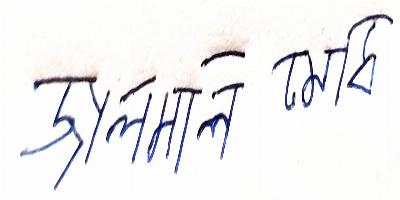 জালমালি মেধি